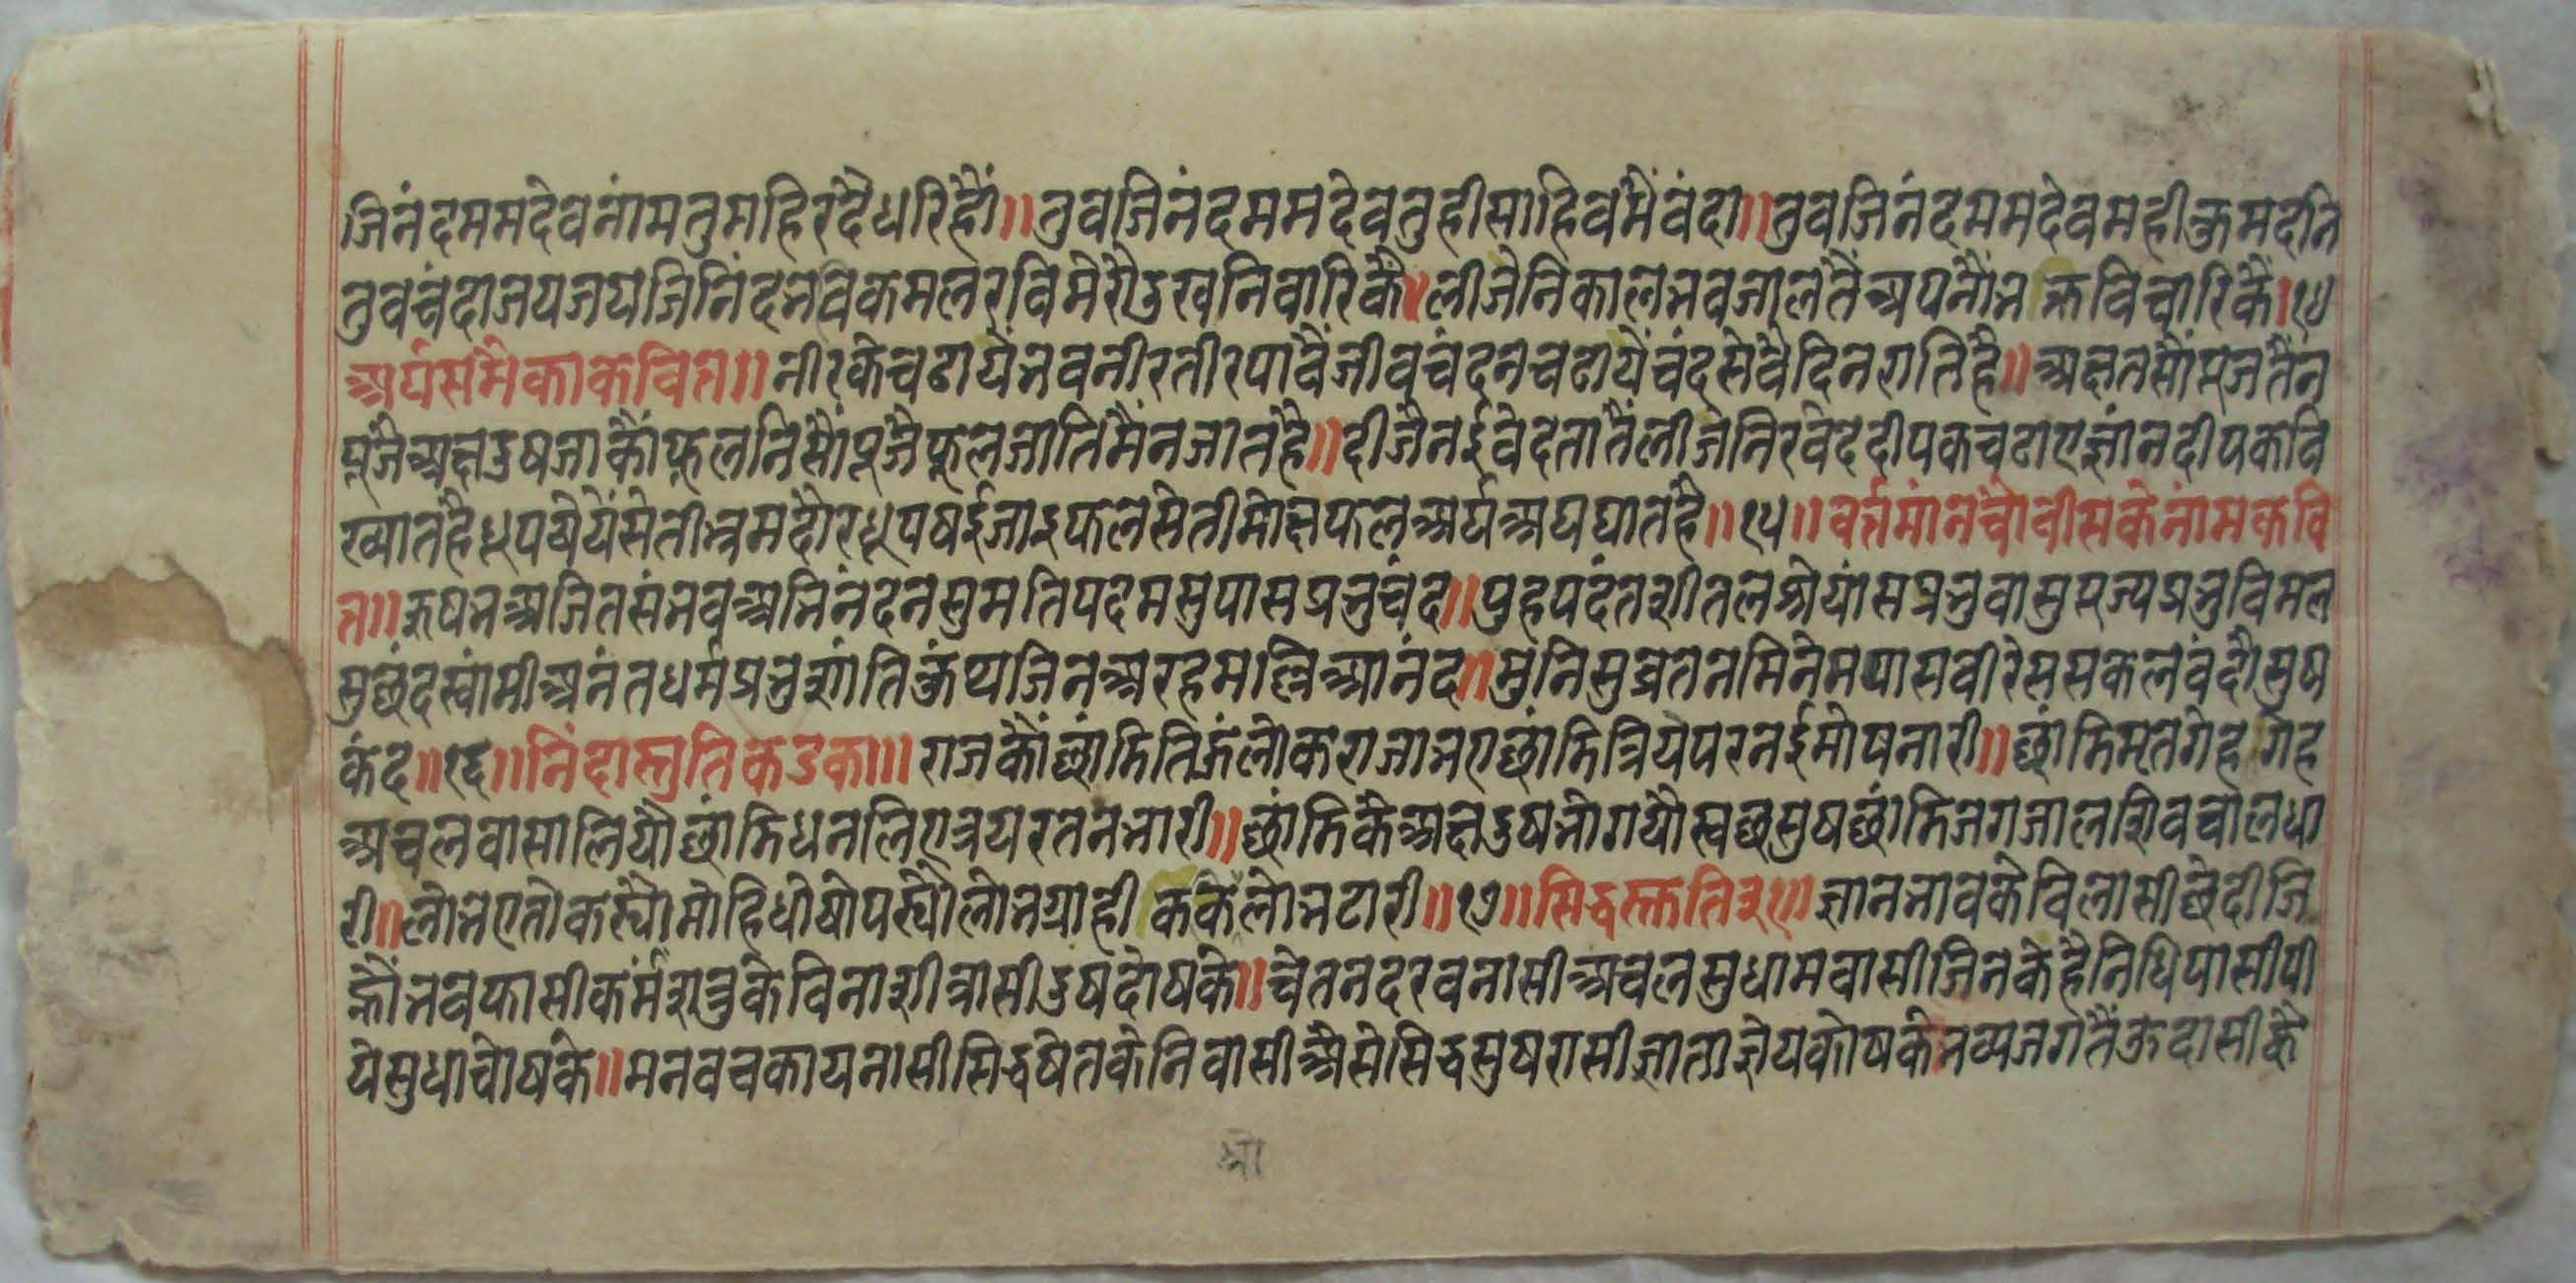 जिनंदममदेवनांमतुमहिरदैधरिहौं॥तुवजिनंदममदेवतुहीसाहिवमैंवंदा॥तुवजिनंदममदेवमहीकुमदनि
तुवचंदाजयजयजिनिंदभवेकमलरविमेरौदुखनिवारिकै॥लीजेनिकालभवजालतैंअपनौंभक्तविचारिकैं।१४
अर्घसमैकाकवित्त॥नीरकेचढायेंभवनीरतीरपावैंजीवचंदनचढायेंचंदसेवैदिनरातिहै॥अक्षतसौंपूजतैंन
पूजेअक्षदुषजाकौंफूलनिसौंपूजैफूलजातिमैंनजातहै॥दीजैनईवेदतातैंलीजेनिरवेददीपकचढाएज्ञांनदीपकवि
ख्यातहैधूपषेयेंसेतीभ्रमदौरधूपषईजाइफलसेतीमोक्षफलअर्घअघघातहै॥१५॥वर्तमांनचौवीसकेनांमकवि
त्त॥रुषभअजितसंभवअभिनंदनसुमतिपदमसुपासप्रभुचंद॥पुहपदंतशीतलश्रेयांसप्रभुवासुपूज्यप्रभुविमल
सुछंदस्वांमीअनंतधर्मप्रभुशांतिकुंथजिनअरहमल्लिआनंद॥मुनिसुव्रतनमिनेमपासवीरेससकलवंदौसुष
कंद॥१६॥निंदास्तुतिकडका॥॥राजकौंछांडितिहूंलोकराजाभएछांडित्रियपरनईमोषनारी॥छांडिमृतगेह गेह
अचलवासालियौछांडिधनलिएत्रयरतनभारी॥छांडिकैअक्षदुषभोगयौस्वछसुषछांडिजगजालशिवचालधा
री॥लोभएतोकर्यौमोहिधोषोपर्यौलोभग्राही ककेलोभटारी॥१७॥सिद्धस्तुति३१॥ज्ञानभावकेविलासीछेदीजि
न्हौंभवफासीकर्मशत्रुकेविनाशीत्रासीदुषदोषके॥चेतनदरवनासीअचलसुधामवासीजिनकेहैनिधिपासीपी
येसुधाचोषके॥मनवचकायनासीसिद्धषेतकेनिवासीऔसेसिद्धसुषरासीज्ञाताज्ञेयकोषकेभव्यजगतैंऊदासीह्वै
श्री